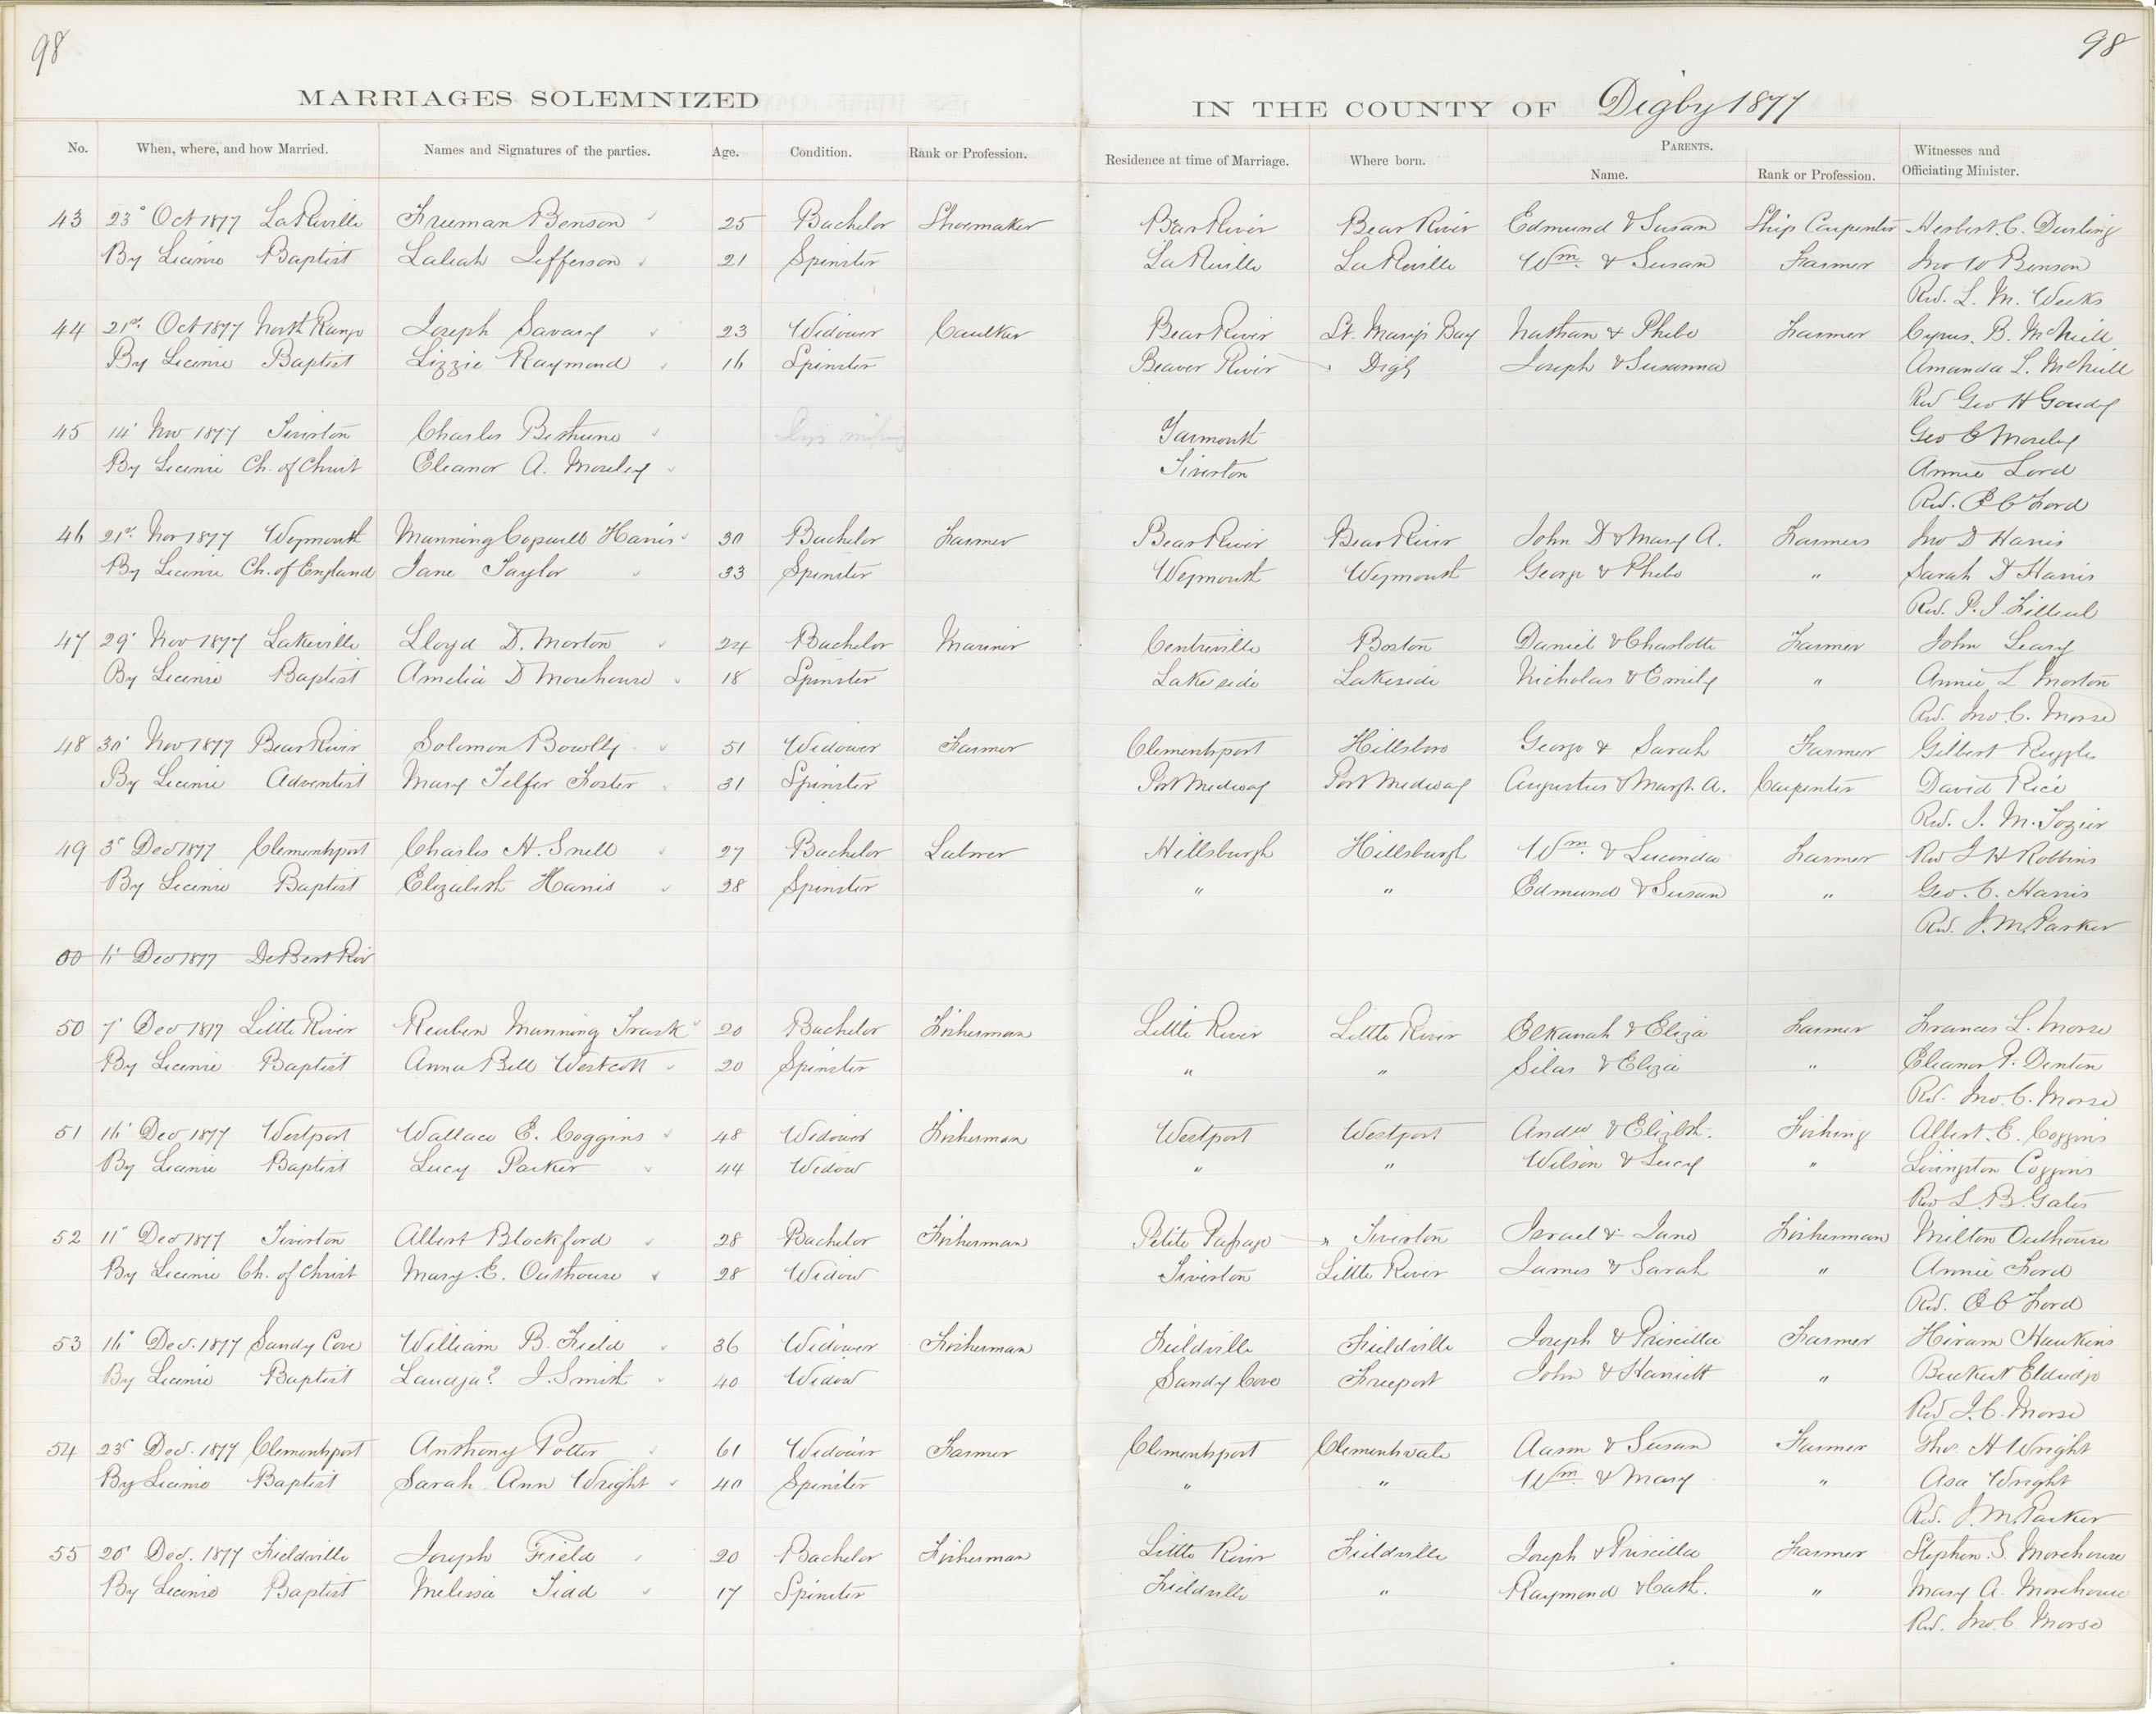 98
98
MARRIAGES SOLEMNIZED IN THE COUNTY OF Digby 1877
No. When, where, and how Married. Names and Signatures of the parties. Age. Condition. Rank or Profession. Residence at time of Marriage. Where born. PARENTS. Name. Rank or Profession. Witnesses and Officiating Minister.
43 23" Oct 1877 Freeman Benson 25 Bachelor Shoemaker Bear River Bear River Edmund & Susan Ship Carpenter Herbert C. Durling
By Licence Baptist Laliah Jefferson 21 Spinster Wm. & Susan Farmer Jno W Benson
Rev. L. M. Weeks
44 21st. Oct 1877 North Range Joseph Savary 23 Widower Caulker Bear River St. Marys Bay Nathan & Phebe Farmer Cyrus. B. McNeill
By Licence Baptist Lizzie Raymond 16 Spinster Beaver River Digby Joseph & Susanna Amanda L. McNeill
Rev Geo H Goudey
45 14" Nov 1877 Tiverton Charles Bethune Yarmouth Geo C Moseley
By Licence Ch. of Christ Eleanor A. Moseley Tiverton Annie Lord
Rev. E C Ford
46 21st. Nov 1877 Weymouth Manning Harris 30 Bachelor Farmer Bear River Bear River John D & Mary A. Farmers Jno D Harris
By Licence Ch. of England Jane Taylor 33 Spinster Weymouth Weymouth George & Phebe " Sarah D Harris
Rev. P. J. Filleul
47 29" Nov 1877 Lakeville Lloyd D. Morton 24 Bachelor Mariner Centreville Boston Daniel & Charlotte Farmer John Leary
By Licence Baptist Amelia D Morehouse 18 Spinster Lakeside Lakeside Nicholas & Emily " Annie L Morton
Rev. Jno. C. Morse
48 30" Nov 1877 Bear River Solomon Bowlby 51 Widower Farmer Clementsport Hillsboro George & Sarah Farmer Gilbert Ruggles
By Licence Adventist Mary Telfer Foster 31 Spinster Port Medway Port Medway Augustus & Margt. A. Carpenter David Rice
Rev. J. M. Tozier
49 5" Dec 1877 Clementsport Charles H. Snell 27 Bachelor Laborer Hillsburgh Hillsburgh Wm. & Lucinda Farmer Rev J H Robbins
By Licence Baptist Elizabeth Harris 28 Spinster " " Edmund & Susan " Geo. C. Harris
Rev. J. M. Parker
00 Dec 1877 DeBert Riv
50 7" Dec 1877 Little River Reuben Manning Trask 20 Bachelor Fisherman Little River Little River Elkanah & Eliza Farmer Frances L. Morse
By Licence Baptist Anna Bell Westcott 20 Spinster " " Silas & Eliza " Eleanor P. Denton
Rev. Jno. C. Morse
51 16" Dec 1877 Westport Wallace E. Coggins 48 Widower Fisherman Westport Westport Andw & Elizbth. Fishing Albert. E. Coggins
By Licence Baptist Lucy Parker 44 Widow " " Wilson & Lucy " Livingston Coggins
Rev L. B. Gates
52 11" Dec 1877 Tiverton Albert Blackford 28 Bachelor Fisherman Petite Passage Tiverton Israel & Jane Fisherman Milton Outhouse
By Licence Ch. of Christ Mary. E. Outhouse 28 Widow Tiverton Little River James & Sarah " Annie Ford
Rev. E C Ford
53 16" Dec. 1877 Sandy Cove William B. Field 36 Widower Fisherman Fieldville Fieldville Joseph & Priscilla Farmer Hiram Hawkins
By Licence Baptist J. Smith 40 Widow Sandy Cove Freeport John & Harriett " Eldridge
Rev J. C. Morse
54 23" Dec. 1877 Clementsport Anthony Potter 61 Widower Farmer Clementsport Clementsvale Aaron & Susan Farmer Tho. H Wright
By Licence Baptist Sarah Ann Wright 40 Spinster " " Wm. & Mary " Asa Wright
Rev. J. M. Parker
55 20" Dec. 1877 Fieldville Joseph Field 20 Bachelor Fisherman Little River Fieldville Joseph & Priscilla Farmer Stephen. S. Morehouse
By Licence Baptist Melissa Tidd 17 Spinster Fieldville " Raymond & Cath. " Mary A. Morehouse
Rev. Jno. C Morse